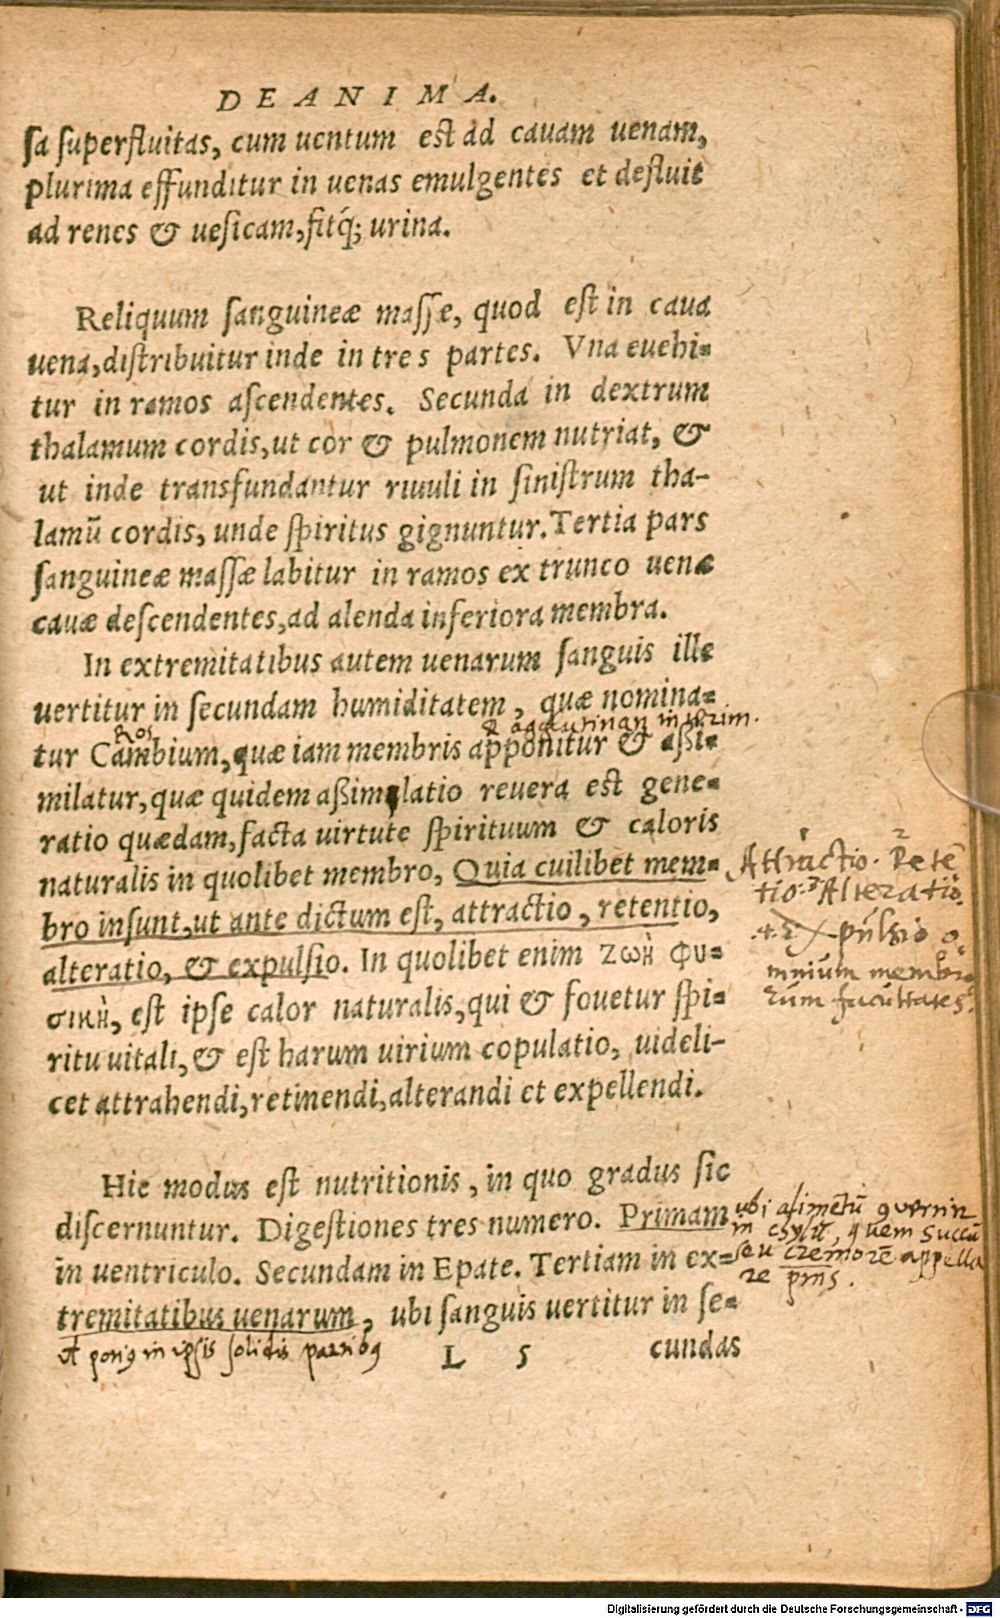 DE ANIMA.
ſa ſuperfluitas, cum uentum eſt ad cauam uenam,
plurima effunditur in uenas emulgentes et defluit
ad renes & ueſicam, fitq́; urina.
Reliquum ſanguineæ maſſæ, quod eſt in caua
uena, diſtribuitur inde in tres partes. Vna euehi=
tur in ramos aſcendentes. Secunda in dextrum
thalamum cordis, ut cor & pulmonem nutriat, &
ut inde transfundantur riuuli in ſiniſtrum tha-
lamū cordis, unde ſpiritus gignuntur. Tertia pars
ſanguineæ maſſæ labitur in ramos ex trunco uenæ
cauæ deſcendentes, ad alenda inferiora membra.
In extremitatibus autem uenarum ſanguis ille
uertitur in ſecundam humiditatem, quæ nomina=
Ros
tur Cambium, quæ iam membris apponitur & aßi=
milatur, quæ quidem aßimilatio reuera eſt gene=
ratio quædam, facta uirtute ſpirituum & caloris
naturalis in quolibet membro, Quia cuilibet mem=
bro inſunt, ut ante dictum eſt, attractio, retentio,
alteratio, & expulſio. In quolibet enim ζωὴ φυ=
σικὴ, eſt ipſe calor naturalis, qui & fouetur ſpi=
ritu uitali, & eſt harum uirium copulatio, uideli-
cet attrahendi, retinendi, alterandi et expellendi.
1 2
Attractio. Retē
tio. 3 Alteratiō.
.4. Expulsio o=
mnium membro
rum facultates.
Hic modus eſt nutritionis, in quo gradus ſic
diſcernuntur. Digeſtiones tres numero. Primam
in uentriculo. Secundam in Epate. Tertiam in ex=
tremitatibus uenarum, ubi ſanguis uertitur in ſe=
ubi alimētū
in chylū, quem succū
seu cremorē appella
re
in ipsis solidis partibꝰ
L 5 cundas
Digitalisierung gefördert durch die Deutsche Forschungsgemeinschaft - DFG